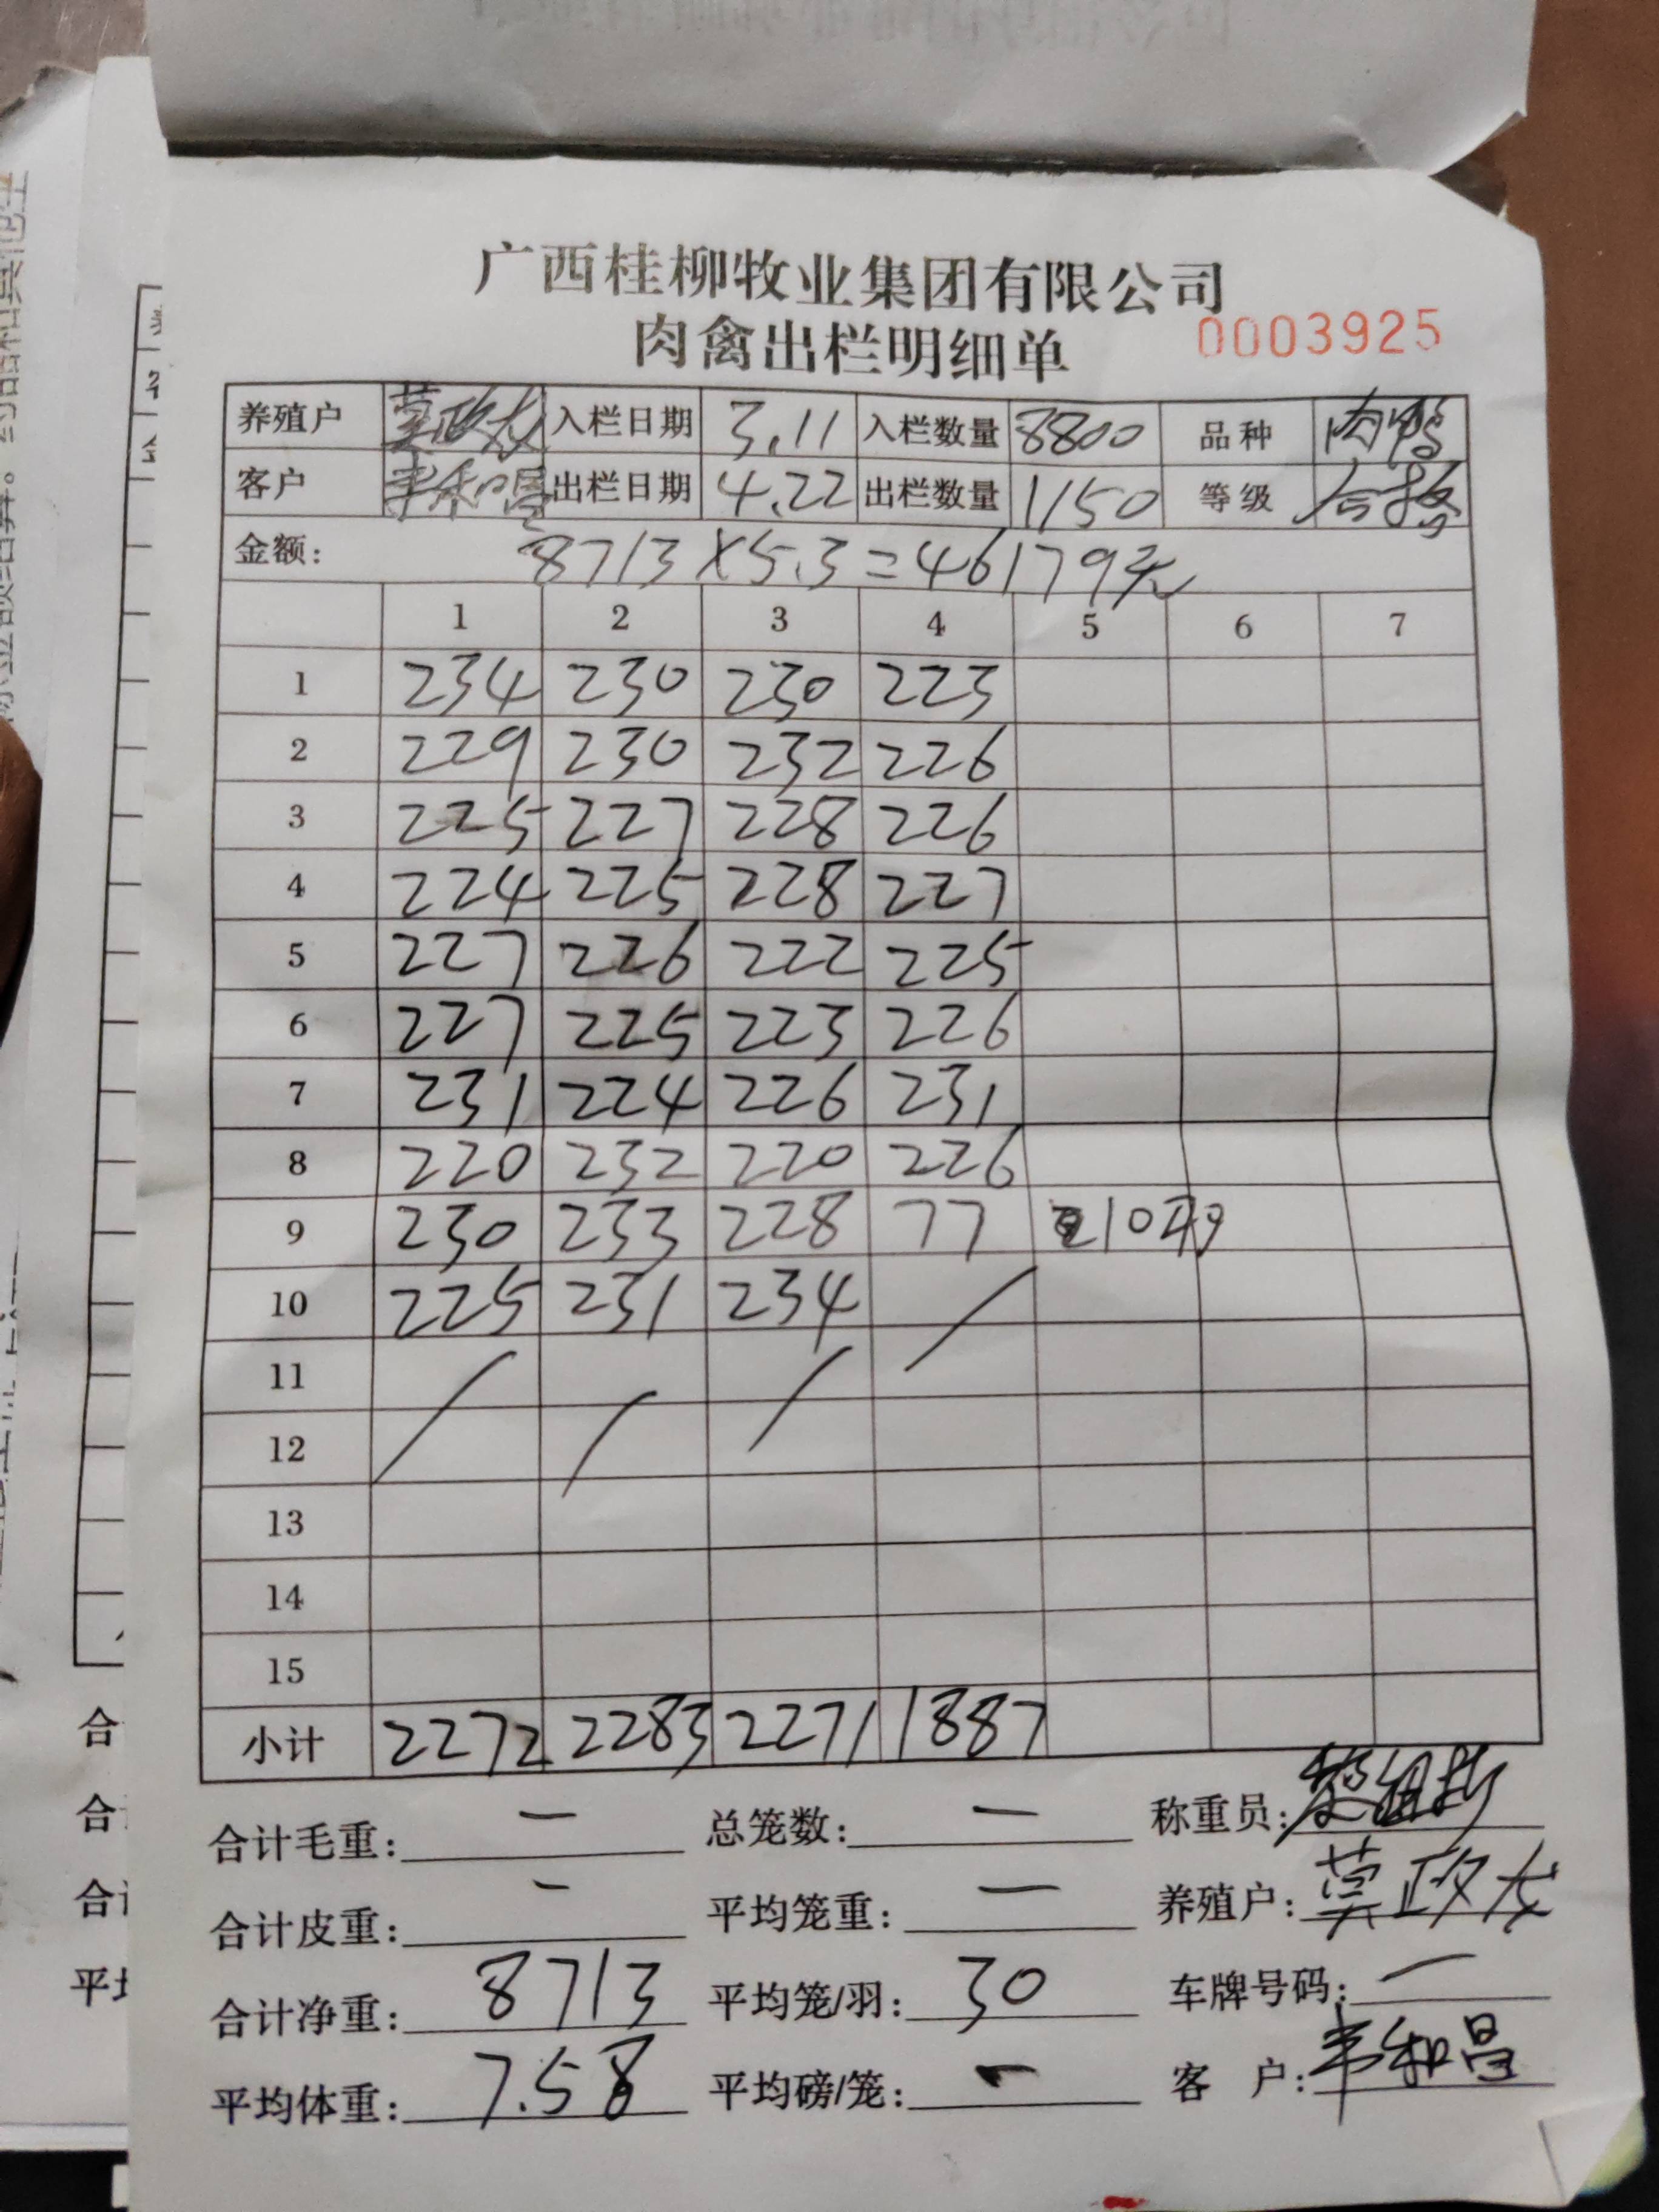 广西桂柳牧业集团有限公司
肉禽出栏明细单 0003925
养殖户 莫政友 入栏日期 3.11 入栏数量 8800 品种 肉鸭
客户 韦和昌 出栏日期 4.22 出栏数量 1150 等级 合格
金额: 8713×5.3=46179元
1 2 3 4 5 6 7
1 234 230 230 223
2 229 230 232 226
3 225 227 228 226
4 224 225 228 227
5 227 226 222 225
6 227 225 223 226
7 231 224 226 231
8 220 232 220 226
9 230 233 228 77 10羽
10 225 231 234
11
12
13
14
15
小计 2272 2283 2271 1887
合计毛重: — 总笼数: — 称重员:
合计皮重: — 平均笼重: — 养殖户: 莫政友
合计净重: 8713 平均笼/羽: 30 车牌号码: —
平均体重: 7.58 平均磅/笼: — 客 户: 韦和昌